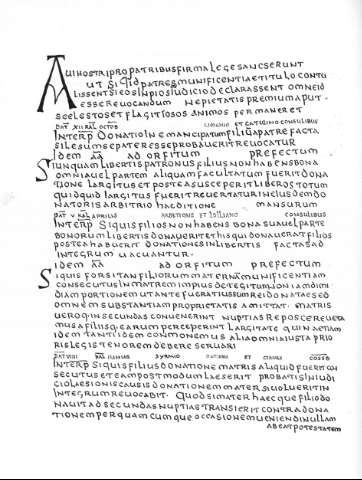 AUI NOSTRI PRO PATRIBUS FIRMA LEGE SANCSERUNT
UT SI QID PATRES MUNIFICENTIAE TITULO CONTU
LISSENT SI EOS INPIOS IUDICIO DECLARASSENT OMNE ID
ESSE REUOCANDUM NE PIETATIS PREMIUM APUT
SCELESTOS ET FLAGITIOSOS ANIMOS PERMANERET
DAT XII KAL OCTOB ET CONSULIBUS
INTERP DONATIO IN EMANCIPATUM FILIUM A PATRE FACTA
SI LESUM SE PATER ESSE PROBAUERIT REUOCATUR
IDEM AA AD ORFITUM PREFECTUM
SI UNQUAM LIBERTIS PATRONUS FILIUS NON HABENS BONA
OMNIA UEL PARTEM ALIQUAM FACULTATUM FUERIT DONA
TIONE LARGITUS ET POSTEA SUSCEPERIT LIBEROS TOTUM
QUIDQUID LARGITUS FUERIT REUERTATUR IN EIUSDEM DO
NATORIS ARBITRIO HAC DITIONE MANSURUM
DAT V KAL APRILIUS ARBITIONE ET LOLLIANO CONSULIBUS
INTERP SI QUIS FILIOS NON HABENS BONA SUA UEL PARTE
BONORUM LIBERTIS DONAUERIT ET HIS QUI DONAUERAT FILIOS
POSTEA HABUERIT DONATIONES IN LIBERTIS FACTAS AD
INTEGRUM UACUANTUR
IDEM AA AD ORFITUM PREFECTUM
SI QUIS FORSITAN FILIORUM MATERNAM MUNIFICENTIAM
CONSECUTUS IN MATREM IMPIUS DETEGITUR NON IAM DIMI
DIAM PORTIONEM UT ANTE FUERAT IUSSUM REI DONATAE SED
OMNEM SUBSTANTIAM PROPRIETATIS AMITTAT MATRIS
UERO QI IN SECUNDAS CONUENERINT NUPTIAS REPOSCERE UETA
MUS A FILIIS Q EARUM PERCEPERINT LARGITATE QUIN ETIAM
IDEM TANTIDEM COMMONEMUS ALIA OMNIA IUSTA PRIO
RIS LEGIS TENOREM DEBERE SERUARI
DAT KAL IUNIUS ET COSS
INTERP SI QUIS FILIUS DONATIONE MATRIS ALIQUID FUERIT CON
SECUTUS ET EAM POSTMODUM LAESERIT PROBATIS IN IUDI
CIO LAESIONIS CAUSIS DONATIONEM MATER SI UOLUERIT IN
INTEGRUM REUOCABIT QUOD SI MATER HAEC QUE FILIO DO
NAUIT AD SECUNDAS NUPTIAS TRANSIERIT CONTRA DONA
TIONEM PER QUAMCUMQUE OCCASIONEM UENIENDI NULLAM
HABEAT POTESTATEM